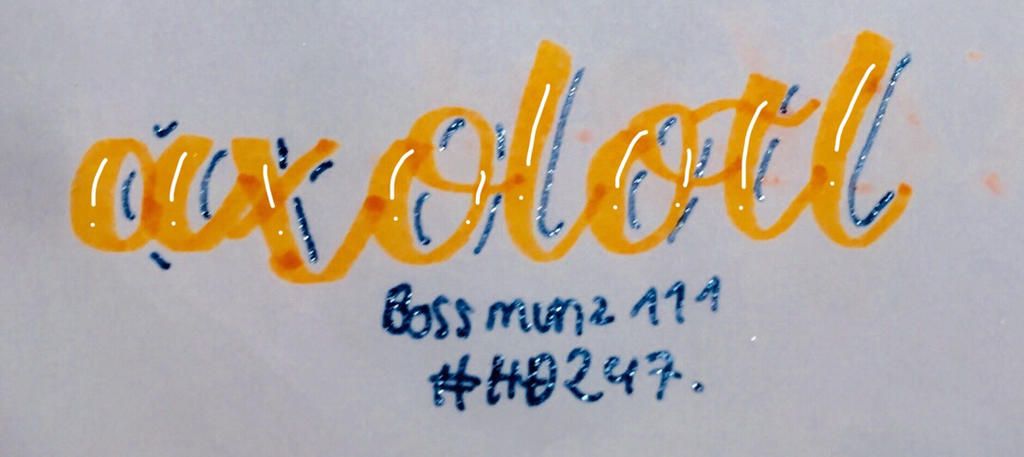 axolotl
Bossmunz 111
#HD247.